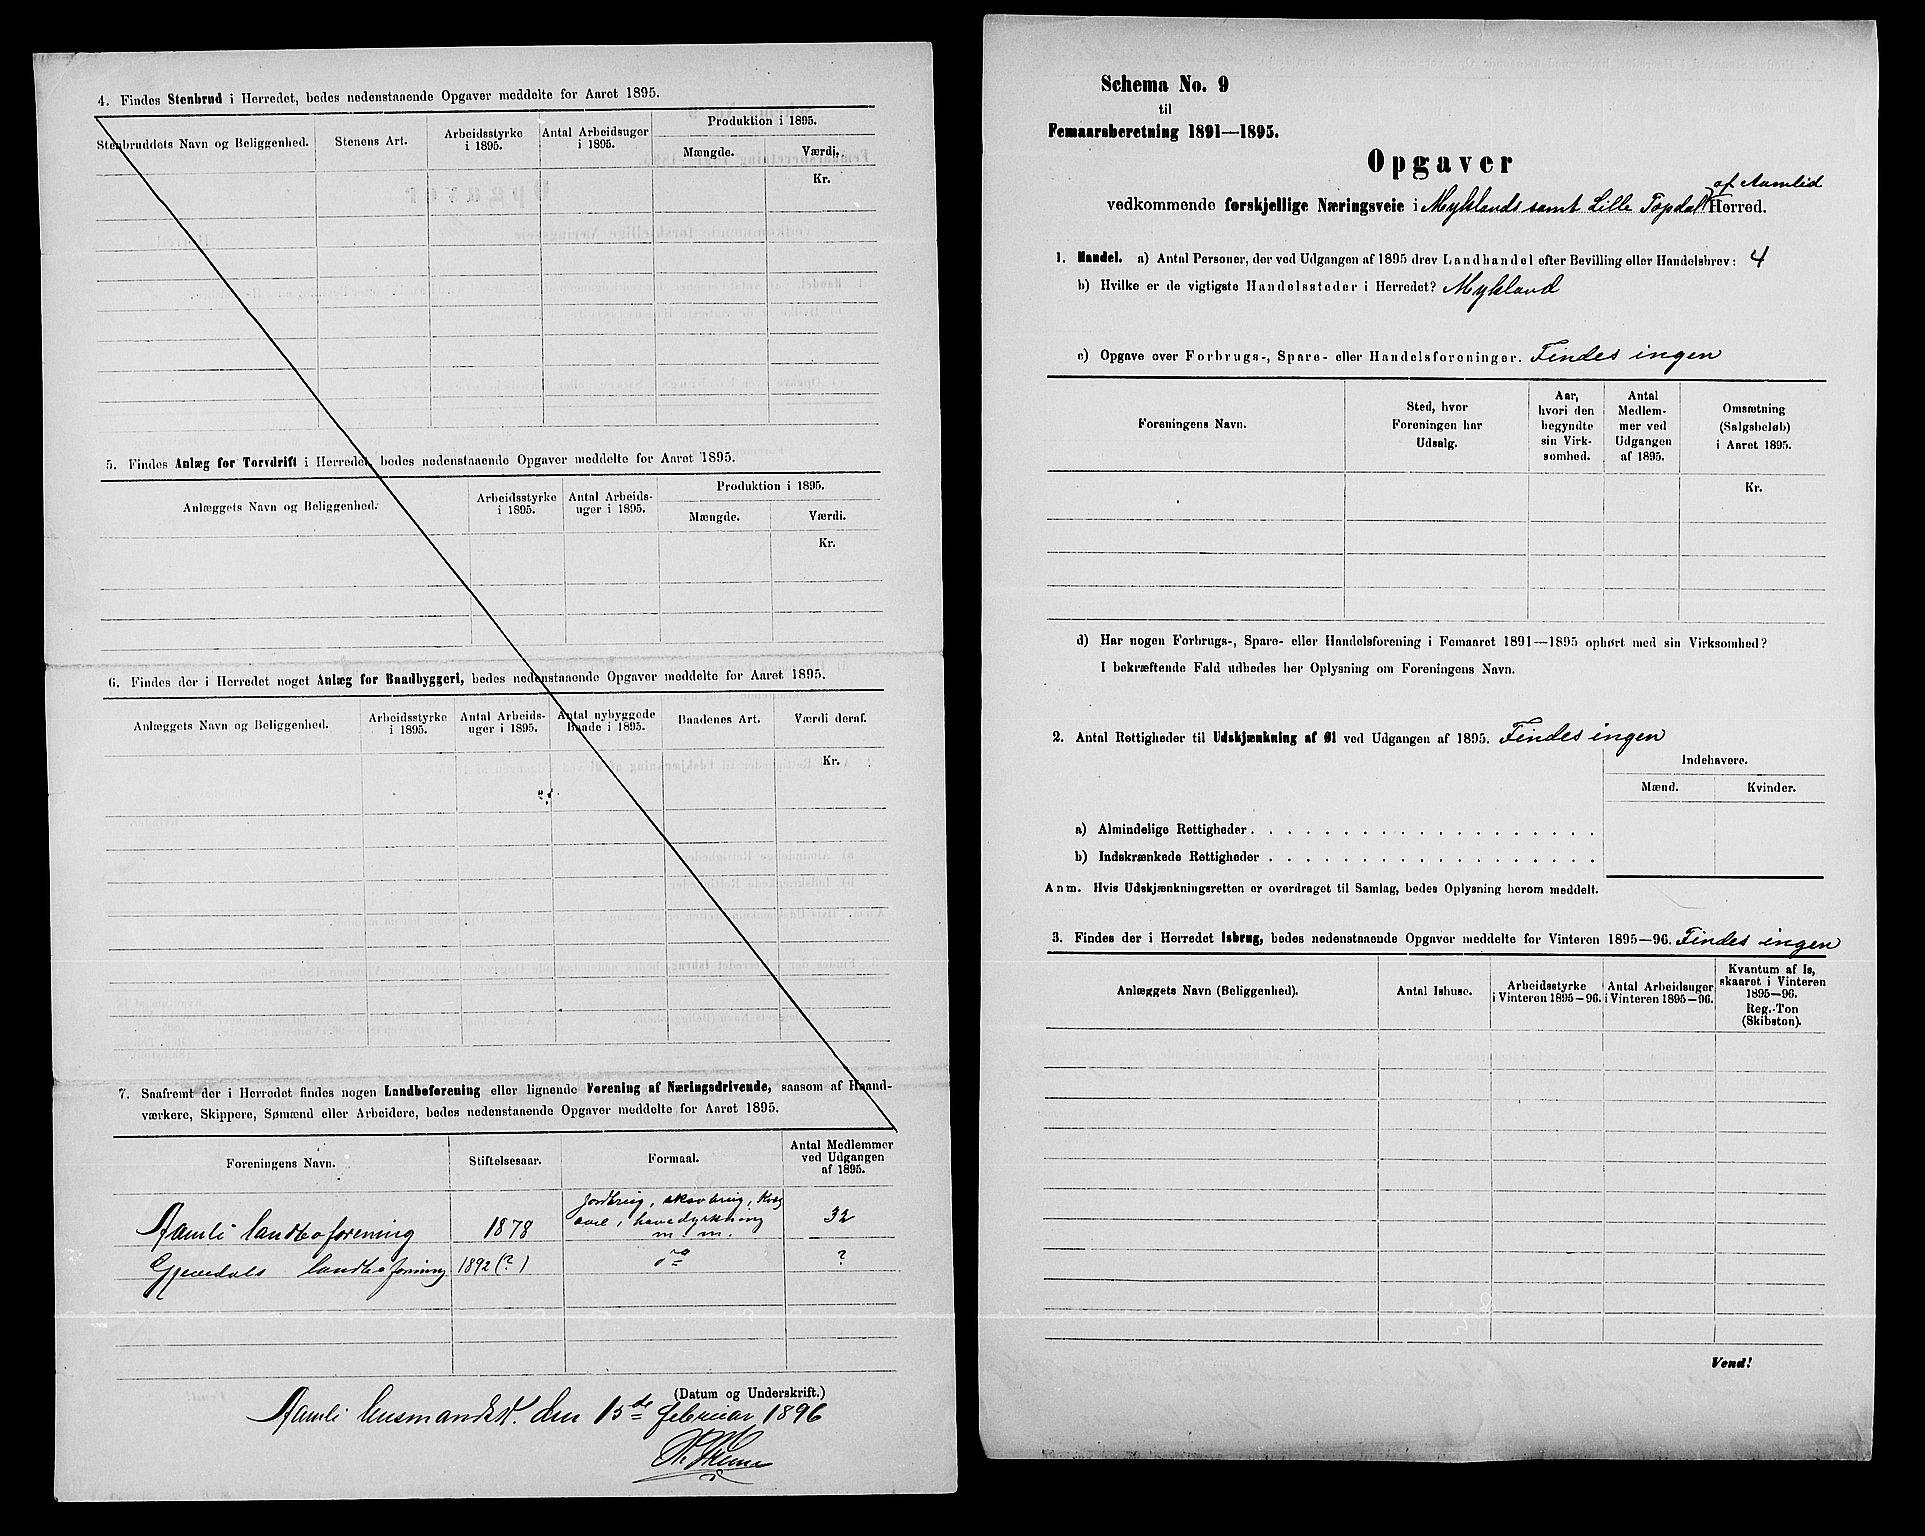 4. Findes Stenbrud i Herredet, bedes nedenstaaende Opgaver meddelte for Aaret 1895.
Stenbruddets Navn og Beliggenhed.
Stenens Art.
Arbeidsstyrke
i 1895.
Antal Arbeidsuger
i 1895.
Produktion i 1895.
Mængde.
Værdi.
Kr.
5. Findes Anlæg for Torvdrift i Herredet, bedes nedenstaaende Opgaver meddelte for Aaret 1895.
Anlæggets Navn og Beliggenhed.
Arbeidsstyrke
i 1895.
Antal Arbeids-
uger i 1895.
Produktion i 1895.
Mængde.
Værdi.
Kr.
6. Findes der i Herredet noget Anlæg for Baadbyggeri, bedes nedenstaaende Opgaver meddelte for Aaret 1895.
Anlæggets Navn og Beliggenhed.
Arbeidsstyrke
i 1895.
Antal Arbeids-
uger i 1895.
Antal nybyggede
Baade i 1895.
Baadenes Art.
Værdi deraf.
Kr.
7. Saafremt der i Herredet findes nogen Landboforening eller lignende Forening af Næringsdrivende, saasom af Haand-
værkere, Skippere, Sømænd eller Arbeidere, bedes nedenstaaende Opgaver meddelte for Aaret 1895.
Foreningens Navn.
Stiftelsesaar.
Formaal.
Antal Medlemmer
ved Udgangen
af 1895.
Aamli landboforening
1878
jordbrug, skovbrug, kvæg
avl, havedyrkning
m. m.
32
Gjevedals landboforening
1892 (?)
do
?
(Datum og Underskrift.)
Aamli lensmandsd. den 15de februar 1896
Schema No. 9
til
Femaarsberetning 1891—1895.
Opgaver
af Aamlid
vedkommende forskjellige Næringsveie i Myklands samt Lille Topdal Herred.
1. Handel. a) Antal Personer, der ved Udgangen af 1895 drev Landhandel efter Bevilling eller Handelsbrev: 4
b) Hvilke er de vigtigste Handelssteder i Herredet? Mykland
c) Opgave over Forbrugs-, Spare- eller Handelsforeninger. Findes ingen
Foreningens Navn.
Sted, hvor
Foreningen har
Udsalg.
Aar,
hvori den
begyndte
sin Virk-
somhed.
Antal
Medlem-
mer ved
Udgangen
af 1895.
Omsætning
(Salgsbeløb)
i Aaret 1895.
Kr.
d) Har nogen Forbrugs-, Spare- eller Handelsforening i Femaaret 1891—1895 ophørt med sin Virksomhed?
I bekræftende Fald udbedes her Oplysning om Foreningens Navn.
2. Antal Rettigheder til Udskjænkning af Øl ved Udgangen af 1895. Findes ingen
Indehavere.
Mænd.
Kvinder.
a) Almindelige Rettigheder . . . . . . . . . . . . . . . . . . . .
b) Indskrænkede Rettigheder . . . . . . . . . . . . . . . . . . .
Anm. Hvis Udskjænkningsretten er overdraget til Samlag, bedes Oplysning herom meddelt.
3. Findes der i Herredet Isbrug, bedes nedenstaaende Opgaver meddelte for Vinteren 1895—96. Findes ingen
Anlæggets Navn (Beliggenhed).
Antal Ishuse.
Arbeidsstyrke
i Vinteren 1895—96.
Antal Arbeidsuger
i Vinteren 1895—96.
Kvantum af Is,
skaaret i Vinteren
1895—96.
Reg.-Ton
(Skibston).
Vend!